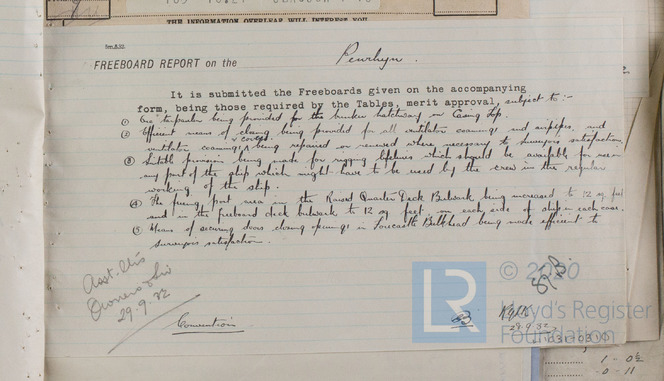 THE INFORMATION OVERLEAF WILL INTEREST YOU
FREEBOARD REPORT on the Penrhyn.
It is submitted the Freeboards given on the accompanying
form, being those required by the Tables, merit approval, subject to :-
(1) One tarpaulin being provided for the bunker hatchway on Casing Top.
(2) Efficient means of closing being provided for all ventilator coamings and airpipes, and
ventilator coamings, covers being repaired or renewed where necessary to Surveyors satisfaction
(3) Suitable provision being made for rigging lifelines which should be available for use in
any part of the ship which might have to be used by the crew in the regular
working of the ship.
(4) The freeing port area in the Raised Quarter Deck Bulwark being increased to 12 sq. feet
and in the freeboard deck bulwark to 12 sq feet, on each side of ship in each case.
(5) Means of securing doors closing openings in Forecastle Bulkhead being made efficient to
surveyors satisfaction.
29.9.32
Convention
LR © 2020
Lloyd's Register
Foundation
29.9.32
1 - 0½
0 - 11